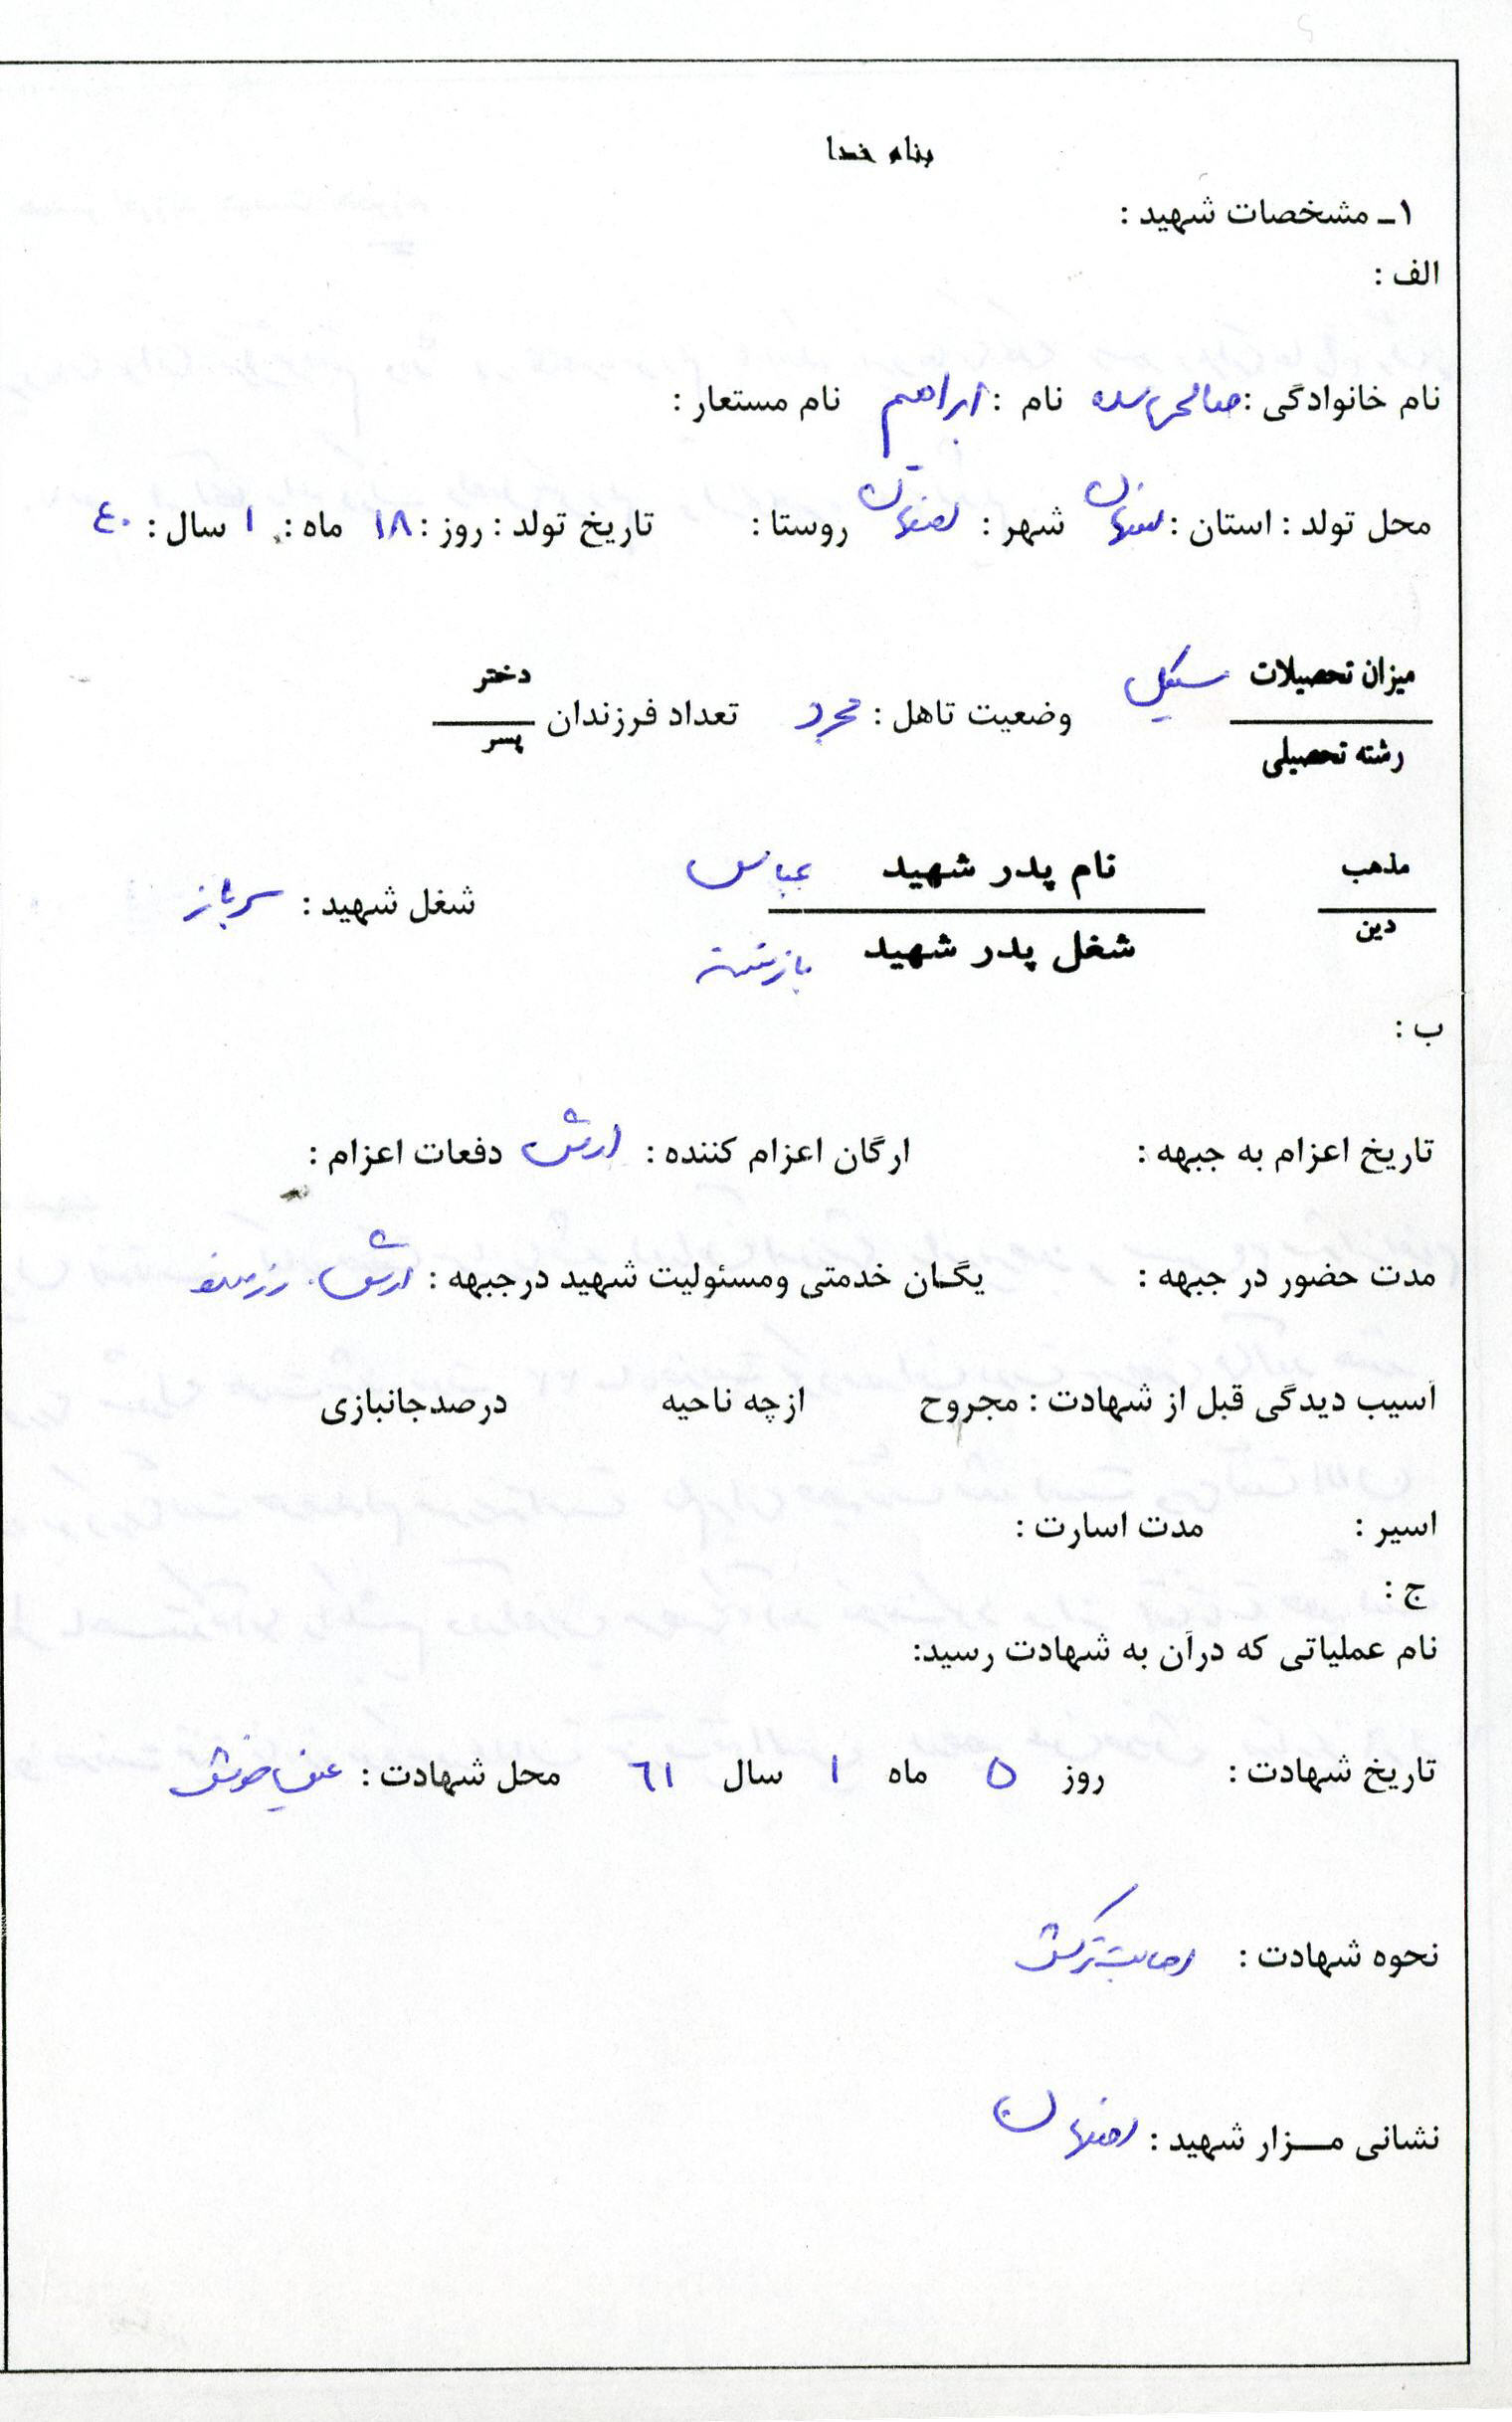 بنام خدا
۱ـ مشخصات شهید :
الف :
نام خانوادگی : نام : ابراهیم نام مستعار :
محل تولد : استان : اصفهان شهر : اصفهان روستا : تاریخ تولد : روز : ۱۸ ماه : ۱ سال : ٤۰
میزان تحصیلات سیکل
رشته تحصیلی
وضعیت تاهل : مجرد تعداد فرزندان
دختر
پسر
مذهب
دین
نام پدر شهید عباس
شغل پدر شهید بازنشسته
شغل شهید : سرباز
ب :
تاریخ اعزام به جبهه : ارگان اعزام کننده : ارتش دفعات اعزام :
مدت حضور در جبهه : یگان خدمتی ومسئولیت شهید درجبهه : ارتش . رزمنده
آسیب دیدگی قبل از شهادت : مجروح ازچه ناحیه درصدجانبازی
اسیر : مدت اسارت :
ج :
نام عملیاتی که درآن به شهادت رسید:
تاریخ شهادت : روز ۵ ماه ۱ سال ٦۱ محل شهادت : غرب شوش
نحوه شهادت : اصابت ترکش
نشانی مـــزار شهید : اصفهان